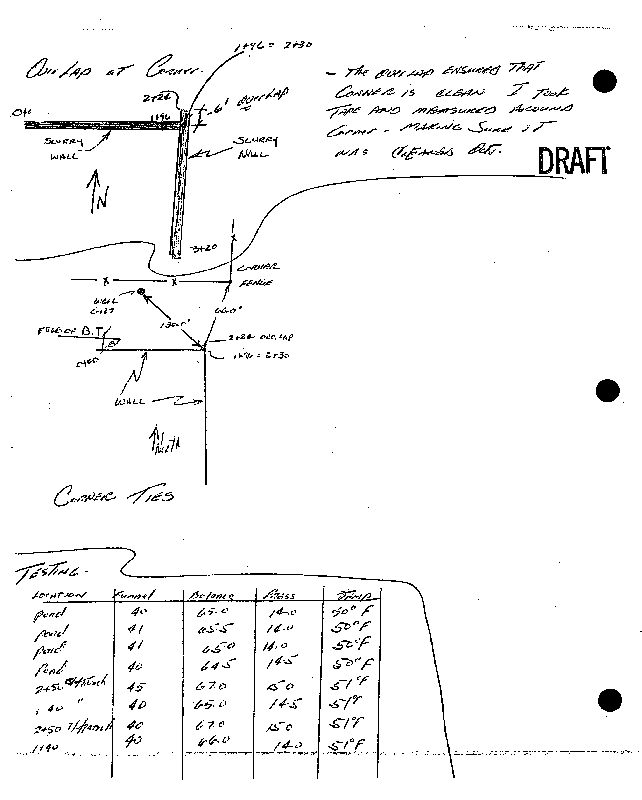 1+96 = 2+30
OverLap at Corner.
2+24
6' OverLAP
0+
1+96
SLURRY WALL
SLURRY WALL
N
3+20
- THE OverLap ENSURED THAT
CORNER IS CLEAN I TOOK
TAPE AND MEASURED AROUND
Corner - MAKING SURE IT
WAS CLEANED OUT.
DRAFT
CORNER
FENCE
WELL
130.0'
66.0'
EDGE OF B.T.
2+24 OverLAP
1+96 = 2+30
N
WALL
North
CORNER TIES
TESTING -
LOCATION Funnel Balance Press Temp
pond 40 65.0 14.0 50°F
pond 41 65.5 14.0 50°F
pond 41 65.0 14.0 50°F
pond 40 64.5 14.5 50°F
2+50 45 67.0 15.0 51°F
1+40 " 40 65.0 14.5 51°F
2+50 40 67.0 15.0 51°F
1+40 40 66.0 14.0 51°F